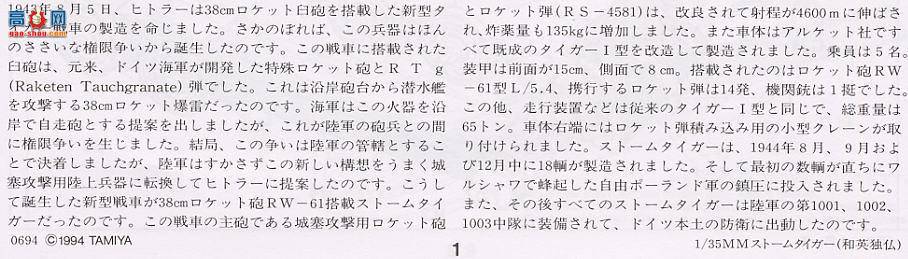 1943年8月5日、ヒトラーは38cmロケット臼砲を搭載した新型タ
戦車の製造を命じました。さかのぼれば、この兵器はほん
のささいな権限争いから誕生したのです。この戦車に搭載された
臼砲は、元来、ドイツ海軍が開発した特殊ロケット砲とＲＴｇ
(Raketen Tauchgranate) 弾でした。これは沿岸砲台から潜水艦
を攻撃する38cmロケット爆雷だったのです。海軍はこの火器を沿
岸で自走砲とする提案を出しましたが、これが陸軍の砲兵との間
に権限争いを生じました。結局、この争いは陸軍の管轄とするこ
とで決着しましたが、陸軍はすかさずこの新しい構想をうまく城
塞攻撃用陸上兵器に転換してヒトラーに提案したのです。こうし
て誕生した新型戦車が38cmロケット砲RW−61搭載ストームタイ
ガーだったのです。この戦車の主砲である城塞攻撃用ロケット砲
とロケット弾(ＲＳ−4581)は、改良されて射程が4600ｍに伸ばさ
れ、炸薬量も135kgに増加しました。また車体はアルケット社です
べて既成のタイガーⅠ型を改造して製造されました。乗員は５名。
装甲は前面が15cm、側面で８cm。搭載されたのはロケット砲RW
−61型Ｌ/5.4、携行するロケット弾は14発、機関銃は１挺でした。
この他、走行装置などは従来のタイガーⅠ型と同じで、総重量は
65トン。車体右端にはロケット弾積み込み用の小型クレーンが取
り付けられました。ストームタイガーは、1944年８月、９月およ
び12月中に18輌が製造されました。そして最初の数輌が直ちにワ
ルシャワで蜂起した自由ポーランド軍の鎮圧に投入されました。
また、その後すべてのストームタイガーは陸軍の第1001、1002、
1003中隊に装備されて、ドイツ本土の防衛に出動したのです。
0694 ©1994 TAMIYA
1
1/35MMストームタイガー(和英独仏)